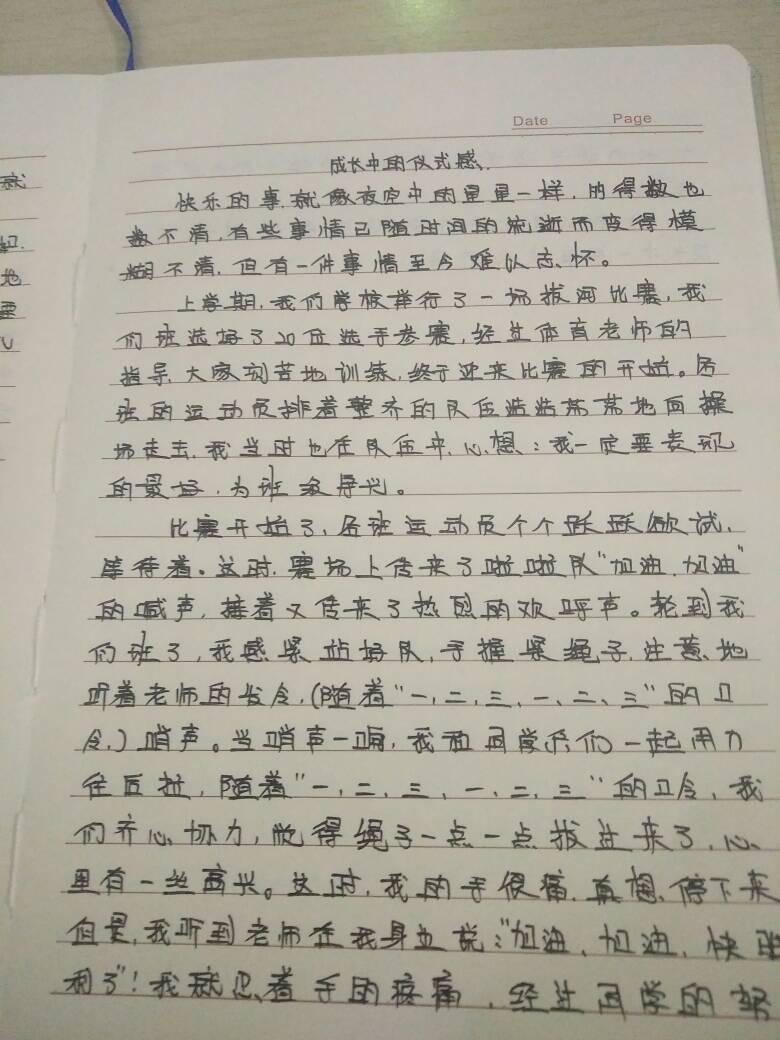 就
地
要
Date Page
成长中的仪式感.
快乐的事.就像夜空中的星星一样,的得数也
数不清,有些事情已随时间的流逝而变得模
糊不清,但有一件事情至今难以忘怀。
上学期,我们学校举行了一场拔河比赛,我
们班选好了20位选手参赛,经过体育老师的
指导,大家刻苦地训练,终于迎来比赛的开始。各
班的运动员排着整齐的队伍浩浩荡荡地向操
场走去,我当时也在队伍中,心想:我一定要表现
的最好,为班级争光。
比赛开始了,各班运动员个个跃跃欲试,
等待着。这时,赛场上传来了啦啦队"加油,加油"
的喊声,接着又传来了热烈的欢呼声。轮到我
们班了,我感紧站好队,手握紧绳子,注意地
听着老师的发令,(随着"一,二,三,一、二、三"的口
令,)哨声。当哨声一响,我和同学们一起用力
往后拉,随着"一,二,三,一,二,三"的口令,我
们齐心协力,觉得绳子一点一点拔过来了,心
里有一丝高兴。这时,我的手很痛,真想停下来
但是,我听到老师在我身边说:"加油,加油,快胜
利了"!我就忍着手的疼痛,经过同学的努